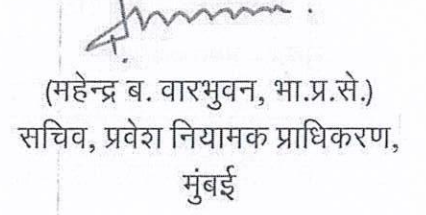 (महेन्द्र ब. वारभुवन, भा.प्र.से.)
सचिव, प्रवेश नियामक प्राधिकरण,
मुंबई